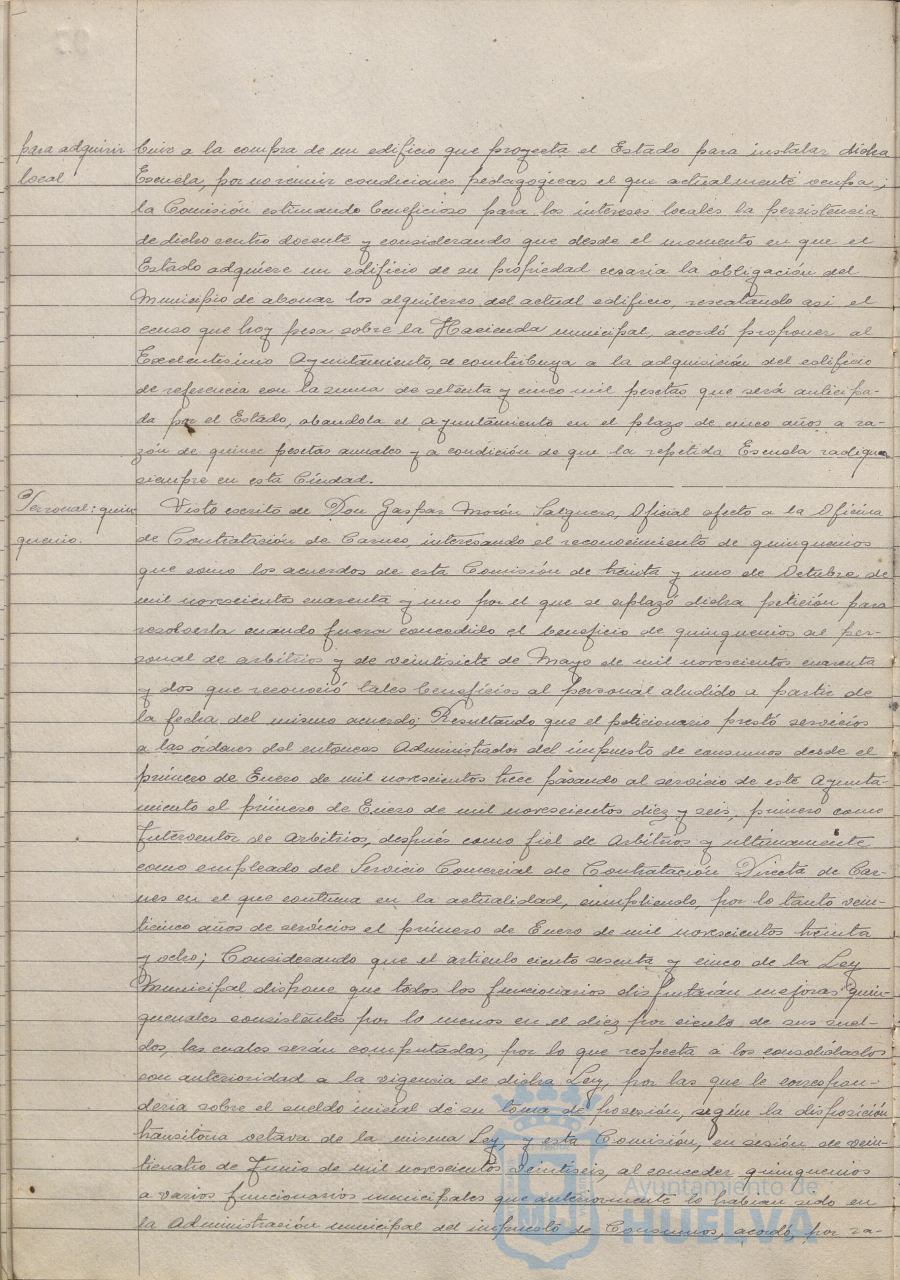 para adquirir
local
buir a la compra de un edificio que proyecta el Estado para instalar dicha
Escuela, por no reunir condiciones pedagogicas el que actualmente ocupa;
la Comisión estimando beneficioso para los intereses locales la persistencia
de dicho centro docente y considerando que desde el momento en que el
Estado adquiere un edificio de su propiedad cesaria la obligación del
Municipio de abonar los alquileres del actual edificio, rescatando asi el
censo que hoy pesa sobre la Hacienda municipal, acordó proponer al
Excelentisimo Ayuntamiento, se contribuya a la adquisición del edificio
de referencia con la suma de setenta y cinco mil pesetas que será anticipa-
da por el Estado, abandola el Ayuntamiento en el plazo de cinco años a ra-
zón de quince pesetas anuales y a condición de que la repetida Escuela radique
siempre en esta Ciudad.
Personal: quin
quenio.
Visto escrito de Don Gaspar Morón Salguero, Oficial afecto a la Oficina
de Contratación de Carnes, interesando el reconocimiento de quinquenios
que como los acuerdos de esta Comisión de treinta y uno de Octubre de
mil novecientos cuarenta y uno por el que se aplazó dicha petición para
resolverla cuando fuera concedido el beneficio de quinquenios al per-
sonal de arbitrios y de veintisiete de Mayo de mil novecientos cuarenta
y dos que reconoció tales beneficios al personal aludido a partir de
la fecha del mismo acuerdo; Resultando que el peticionario prestó servicios
a las órdenes del entonces Administrador del impuesto de consumos desde el
primero de Enero de mil novecientos trece pasando al servicio de este Ayunta-
miento el primero de Enero de mil novecientos diez y seis, primero como
Interventor de Arbitrios, después como fiel de Arbitrios y ultimamente
como empleado del Servicio Comercial de Contratación Directa de Car-
nes en el que continua en la actualidad, cumpliendo, por lo tanto vein-
ticinco años de servicios el primero de Enero de mil novecientos treinta
y ocho; Considerando que el articulo ciento sesenta y cinco de la Ley
Municipal dispone que todos los funcionarios disfrutarán mejoras quin-
quenales consistentes por lo menos en el diez por ciento de sus suel-
dos, las cuales serán computadas, por lo que respecta a los consolidados
con anterioridad a la vigencia de dicha Ley, por las que le correspon-
deria sobre el sueldo inicial de su toma de posesión, según la disposición
transitoria octava de la misma Ley, y esta Comisión, en sesión de vein-
ticuatro de Junio de mil novecientos veintiseis, al conceder quinquenios
a varios funcionarios municipales que anteriormente lo habian sido en
la Administración municipal del impuesto de Consumos, acordó, por ra-
Ayuntamiento de
HUELVA